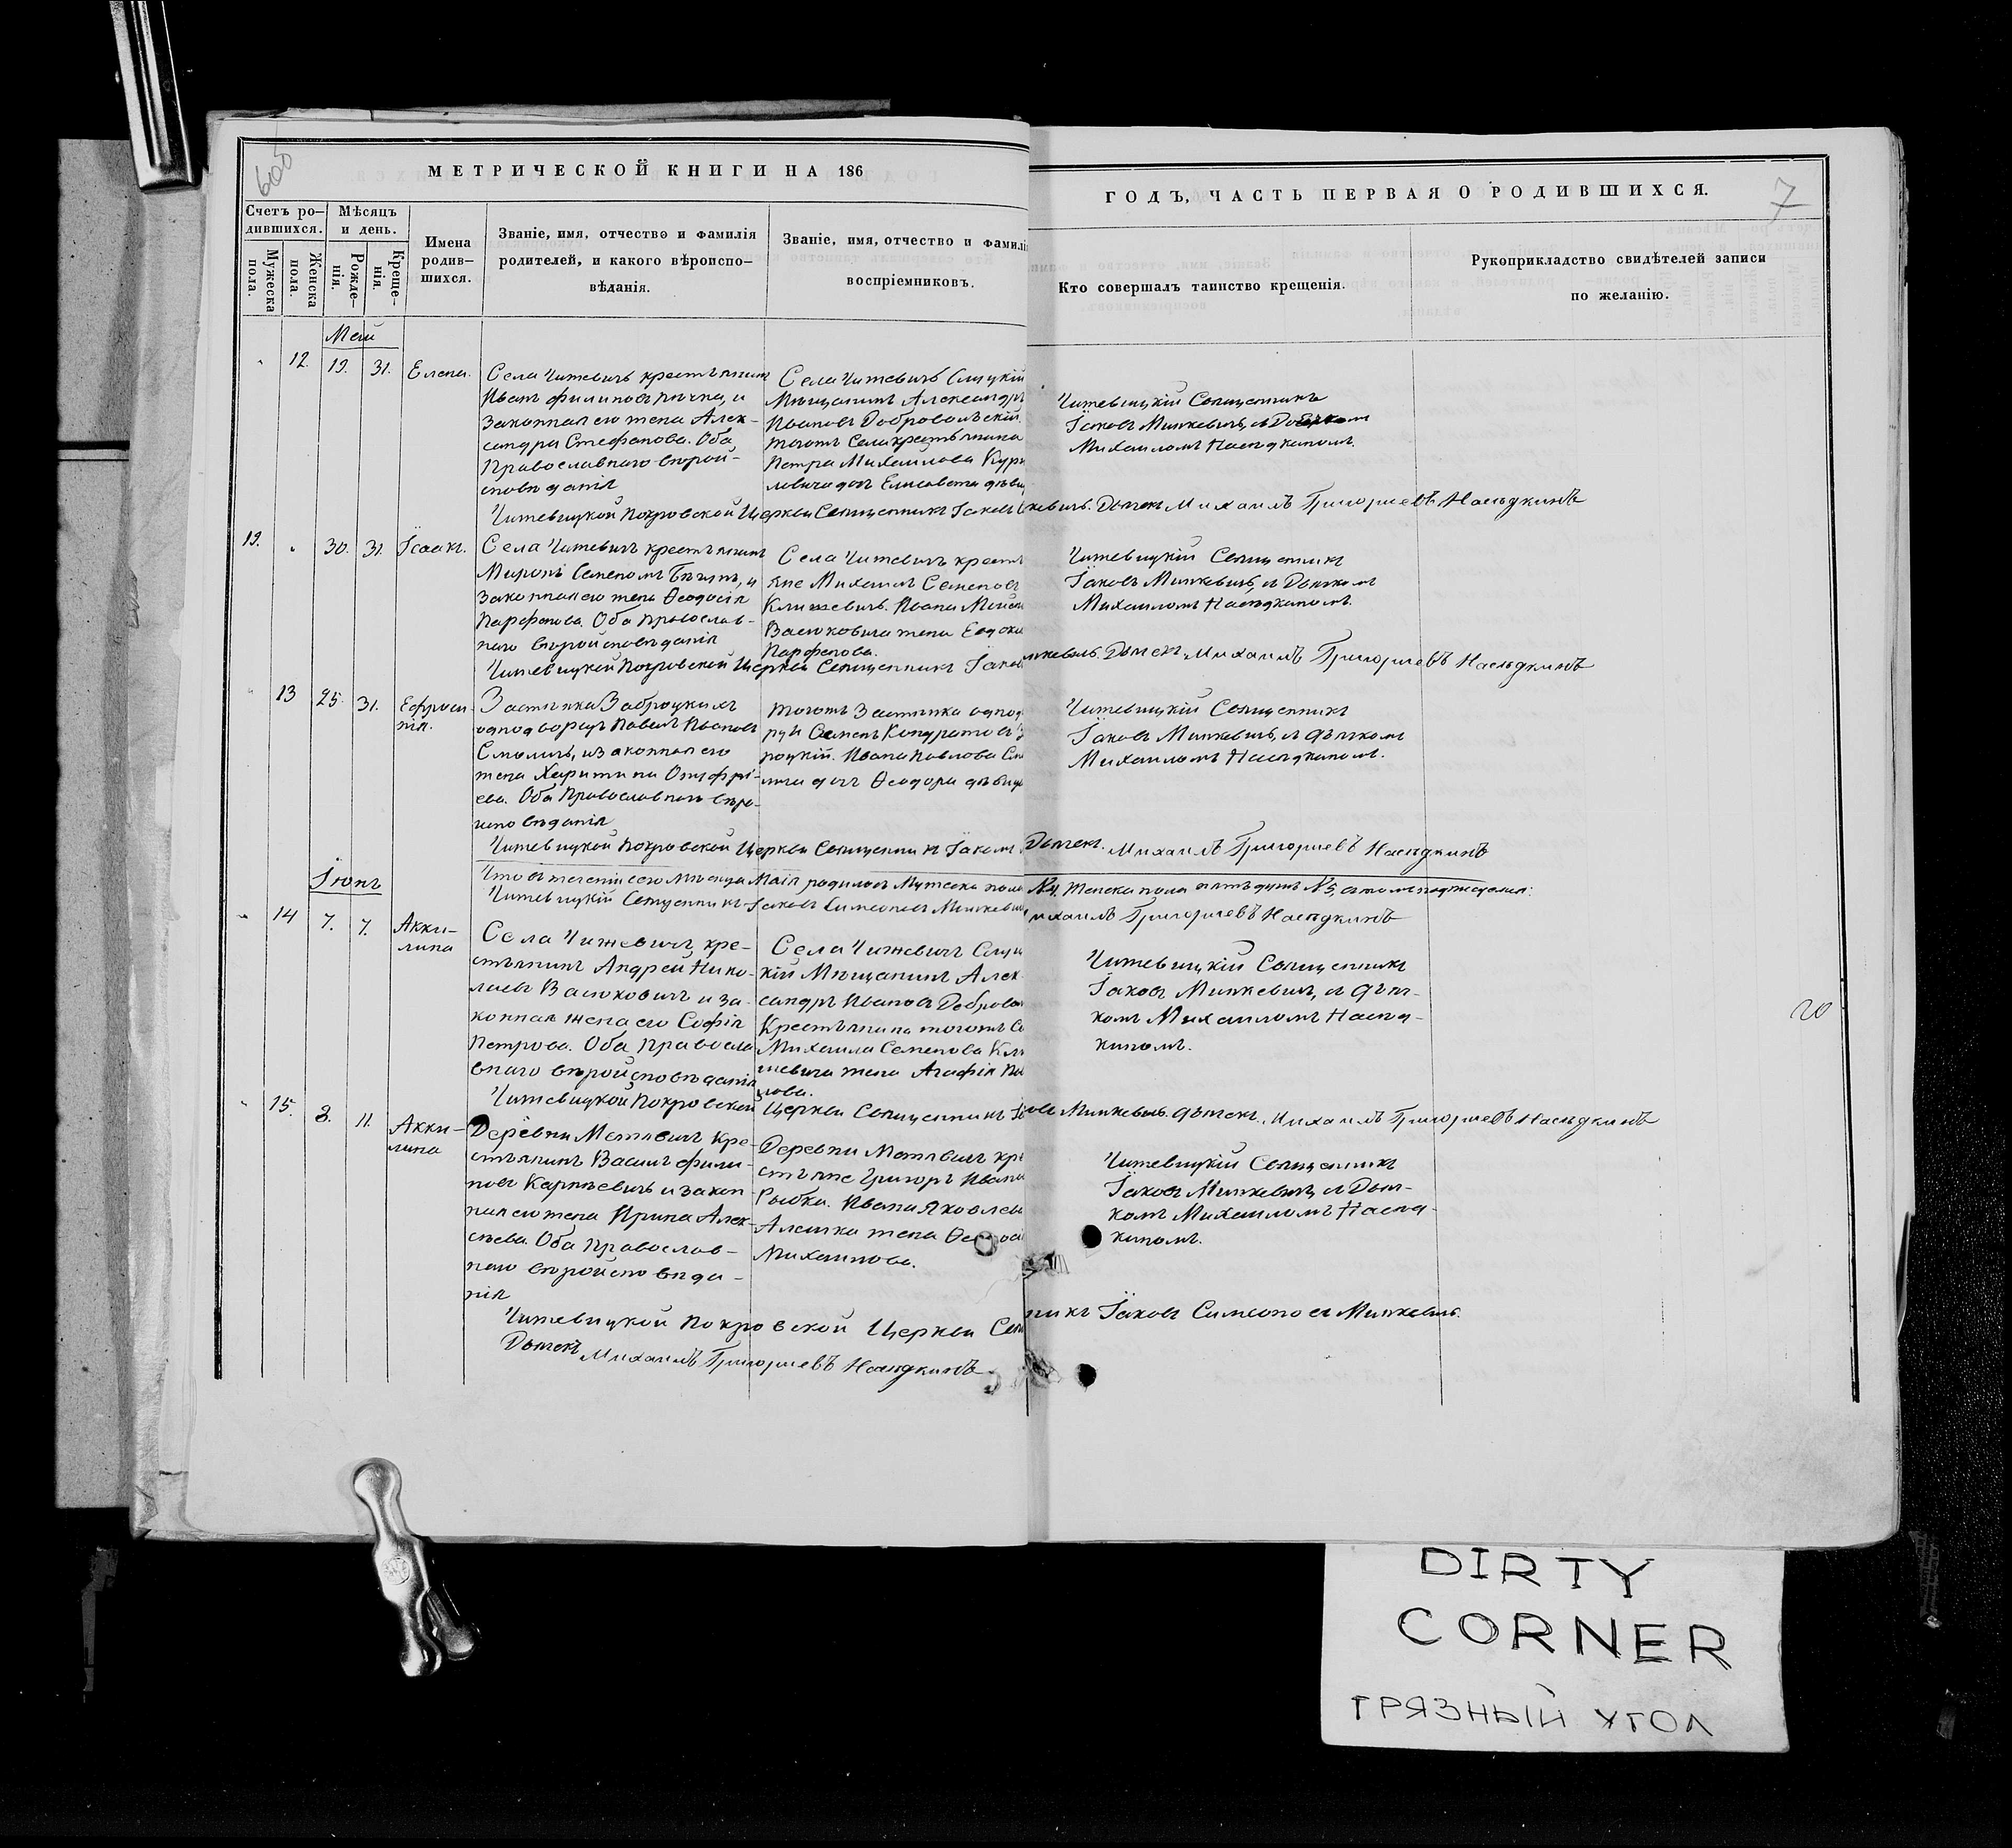 605
МЕТРИЧЕСКОЙ КНИГИ НА 186
ГОДЪ, ЧАСТЬ ПЕРВАЯ О РОДИВШИХСЯ.
7
Счетъ ро-
дившихся.
Мѣсяцъ
и день.
Имена
родив-
шихся.
Званіе, имя, отчество и фамилія
родителей, и какого вѣроиспо-
вѣданія.
Званіе, имя, отчество и фамилі
воспріемниковъ.
Кто совершалъ таинство крещенія.
Рукоприкладство свидѣтелей записи
по желанію.
Мужеска
пола.
Женска
пола.
Рожде-
нія.
Креще-
нія.
Маи
12. 19. 31. Елена.
Села Чижевичъ крестьянинъ
Иванъ Филиповъ и
законная его жена Алек-
сандра Стефанова. Оба
Православнаго вѣрои-
сповѣданія
Села Чижевичъ Слуцкій
Мѣщанинъ Александръ
Ивановъ Добровольскій.
тогожъ Села крестьянина
Петра Михаилова Кур
ловича дочь Елисавета дѣви
Чижевицкій Священникъ
Іаковъ Минкевичъ, съ
Михаиломъ Наседкиномъ.
Чижевицкой Покровской Церкви Священникъ Іаковъ кевичъ. Дьячекъ Михаилъ Григориевъ Насѣдкинъ
19. 30. 31. Ісаакъ.
Села Чижевичъ крестьянинъ
Миронъ Семеновъ и
законная его жена Ѳеодосія
Парфенова. Оба Православ-
наго вѣроисповѣданія
Села Чижевичъ кресть
яне Михаилъ Семеновъ
Климевичъ. Ивана
Васюковича жена Евдоки
Парфенова.
Чижевицкій Священникъ
Іаковъ Минкевичъ, съ Дьячкомъ
Михаиломъ Наседкиномъ.
Чижевицкой Покровской Церкви Священникъ Іаков нкевичъ. Дьячекъ Михаилъ Григориевъ Насѣдкинъ
13 25. 31. Ефроси-
нія.
Застѣнка Заброцкихъ
однодворецъ Павелъ Ивановъ
Смоличъ, и законная его
жена Харитина Онуфрі-
ева. Оба Православнаго вѣро-
исповѣданія
тогожъ Застѣнка однод
рцы Семенъ Кондратовъ З
роцкій. Ивана Павлова См
лича дочь Ѳеодора дѣвица
Чижевицкій Священникъ
Іаковъ Минкевичъ, съ дьячкомъ
Михаиломъ Наседкиномъ.
Чижевицкой Покровской Церкви Священникъ Іаковъ Дьячекъ. Михаилъ Григориевъ Насѣдкинъ
Что въ теченіи сего мѣсяца Маія родилось Мужеска пола №4. Женска пола пять душъ №5, въ томъ подписуемся:
Чижевицкій Священникъ Іаковъ Симеоновъ Минкевичъ михаилъ Григориевъ Насѣдкинъ
Іюнь
14 7. 7. Акки-
лина
Села Чижевичъ кре-
стьянинъ Андрей Нико-
лаевъ Васюковичъ и за-
конная жена его Софія
Петрова. Оба Правосла
внаго вѣроисповѣданія
Села Чижевичъ Слуц
кій Мѣщанинъ Алек-
сандръ Ивановъ Доброво
Крестьянина тогожъ Се
Михаила Семенова Кли
мевича жена Агафія Па
лова.
Чижевицкій Священникъ
Іаковъ Минкевичъ, съ дьяч-
комъ Михаиломъ Насед-
киномъ.
20
Чижевицкой Покровской Церкви Священникъ Іа овъ Минкевичъ. дьячекъ. Михаилъ Григориевъ Насѣдкинъ
15. 8. 11. Акки-
лина
Деревни Метявичъ Кре-
стьянинъ Василь Фили-
повъ Карпѣевичъ и закон-
ная его жена Ирина Алек-
сѣева. Оба Православ-
наго вѣроисповѣда-
нія
Деревни Метявичъ кре
стьяне Григоръ Ивано
Рыбка. Ивана Яковлев
Алешка жена
Михаилова.
Чижевицкій Священникъ
Іаковъ Минкевичъ, съ Дьяч-
комъ Михаиломъ Насед-
киномъ.
Чижевицкой Покровской Церкви Свящ никъ Іаковъ Симеоновъ Минкевичъ.
Дьячекъ Михаилъ Григориевъ Насѣдкинъ
DIRTY
CORNER
ГРЯЗНЫЙ УГОЛ